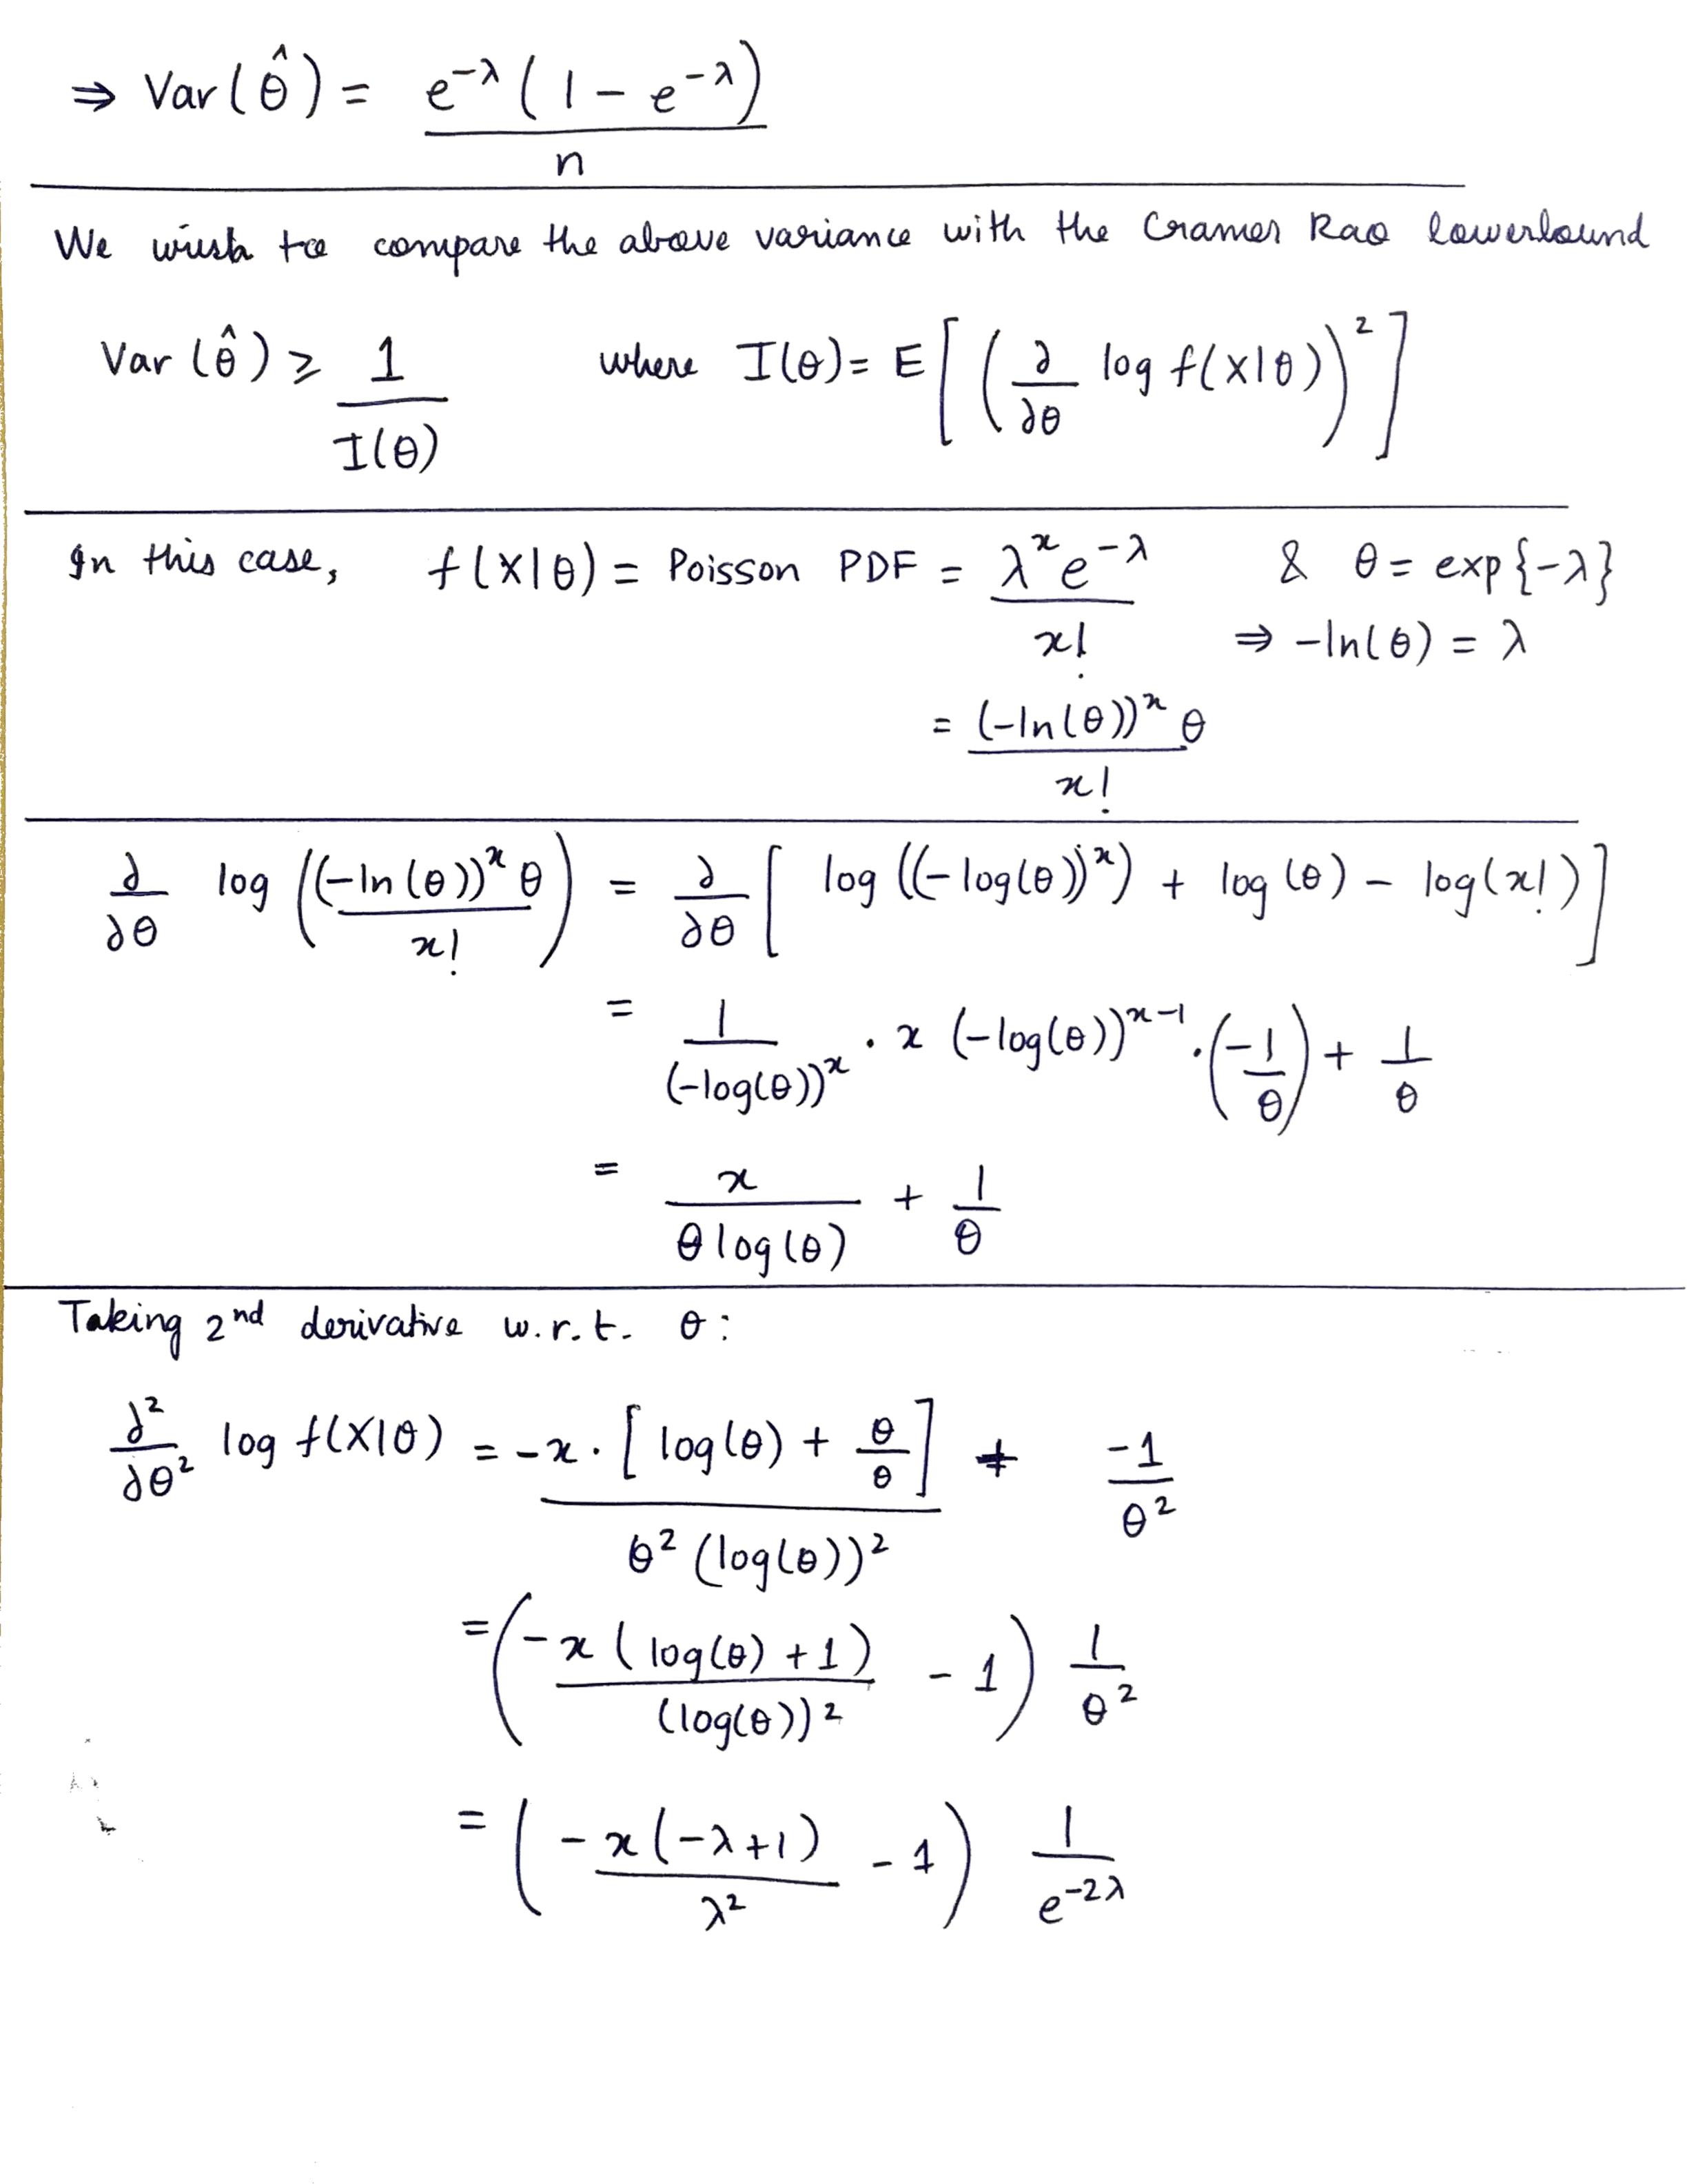 ⇒ Var(θ̂) = e^{-λ}(1 - e^{-λ}) / n
We wish to compare the above variance with the Cramer Rao lowerbound
Var(θ̂) ≥ 1 / I(θ) where I(θ) = E[(∂/∂θ log f(X|θ))²]
In this case, f(X|θ) = Poisson PDF = λ^x e^{-λ} / x! & θ = exp{-λ}
⇒ -ln(θ) = λ
= (-ln(θ))^x θ / x!
∂/∂θ log((-ln(θ))^x θ / x!) = ∂/∂θ [log((-log(θ))^x) + log(θ) - log(x!)]
= 1 / (-log(θ))^x · x (-log(θ))^{x-1} · (-1/θ) + 1/θ
= x / (θ log(θ)) + 1/θ
Taking 2nd derivative w.r.t. θ:
∂²/∂θ² log f(X|θ) = -x · [log(θ) + θ/θ] / (θ² (log(θ))²) + -1/θ²
= (-x (log(θ) + 1) / (log(θ))² - 1) 1/θ²
= (-x(-λ+1) / λ² - 1) 1 / e^{-2λ}